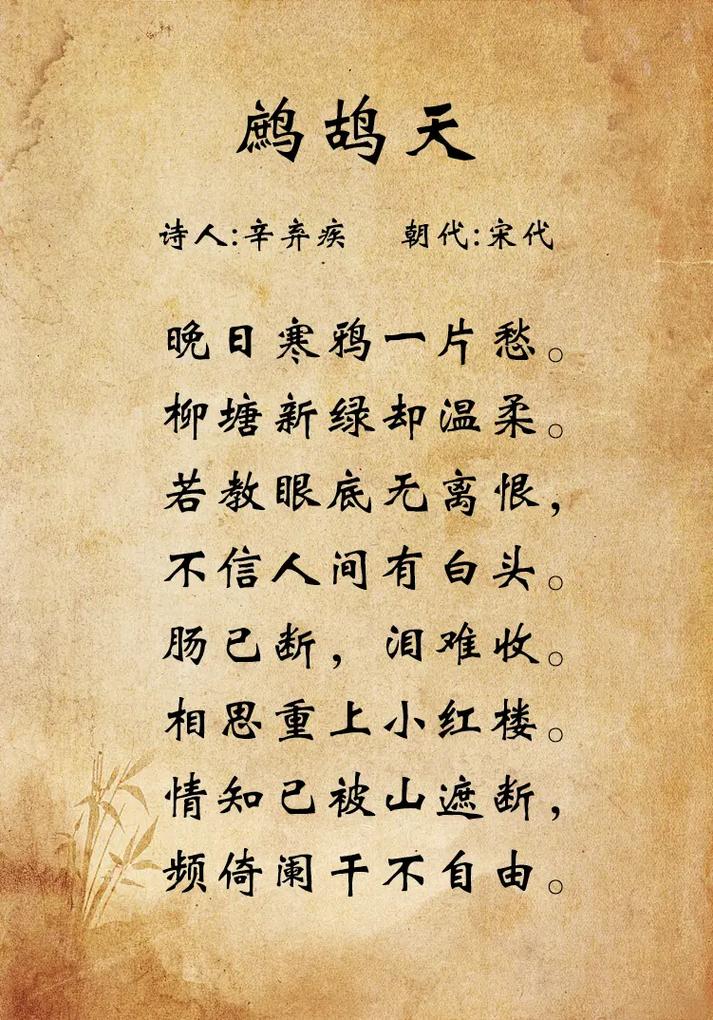 鹧鸪天
诗人:辛弃疾 朝代:宋代
晚日寒鸦一片愁。
柳塘新绿却温柔。
若教眼底无离恨，
不信人间有白头。
肠已断，泪难收。
相思重上小红楼。
情知已被山遮断，
频倚阑干不自由。